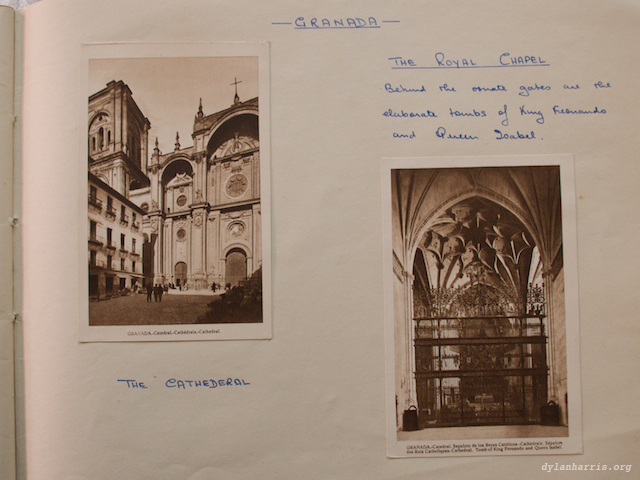 — GRANADA —
THE ROYAL CHAPEL
Behind the ornate gates are the
elaborate tombs of King Fernando
and Queen Isabel.
GRANADA.-Catedral.-Cathédrale.-Cathedral.
THE CATHEDERAL
GRANADA.-Catedral. Sepulcro de los Reyes Católicos.-Cathédrale. Sépulcre
des Rois Catholiques.-Cathedral. Tomb of King Fernando and Queen Isabel.
dylanharris.org